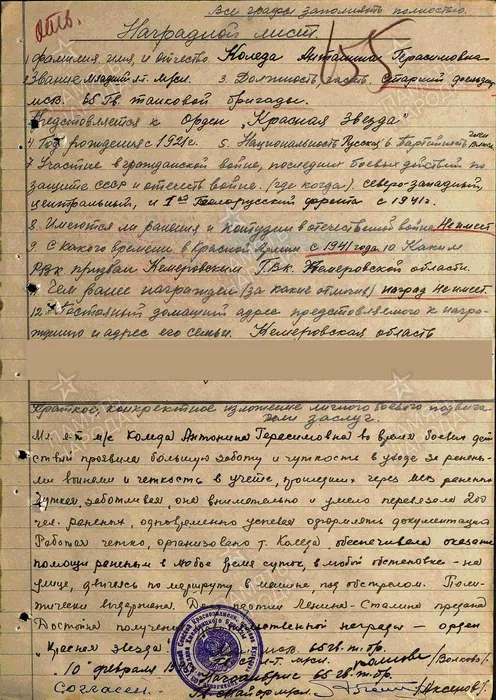 Все графы заполнять полностью.
Наградной лист.
1 Фамилия, имя, и отчество Коледа Антонина Герасимовна
2 Звание младший л-т. м/сл. 3. Должность, часть Старший фельдшер
мсв. 65 Гв танковой бригады.
Представляется к Орден „Красная Звезда"
4 Год рождения с 1921г. 5. Национальность Русская 6 Партийность член ВЛКСМ
7 Участие в гражданской войне, последних боевых действий по
защите СССР и отечеств войне. (где когда). северо-западный,
центральный, и 1ый Белорусский фронта с 1941г.
8. Имеются ли ранения и контузии в отечественной войне Не имеет
9. С какого времени в красной армии с 1941 года 10 Каким
РВК призван Кемеровским ГВК Кемеровской области.
11 Чем ранее награжден (за какие отличия) наград Не имеет
12. Постоянный домашний адрес представляемого к награ-
ждению и адрес его семьи. Кемеровская область
Краткое, конкретное изложение личного боевого подвига
или заслуг.
Мл. л-т м/с Коледа Антонина Герасимовна во время боевых дей
ствий проявила большую заботу и чуткость в уходе за ранены-
ми воинами и четкость в учете, прошедших через мсв раненых
Чуткая, заботливая она внимательно и умело перевязала 200
чел. раненых, одновременно успевая оформлять документацию
Работая четко, организовано т. Коледа, обеспечивала оказание
помощи раненым в любое время суток, в любой обстановке - на
улице, двигаясь по маршруту в машине, под обстрелом. Поли-
тически выдержана. Делу партии Ленина-Сталина предана
Достойна получения правительственной награды - орден
„Красная звезда". мсв. 65 гв. т. бр.
10 февраля л-т. м/сл. /Волков/
65 гв. т. бр.
Согласен. /Аксенов/